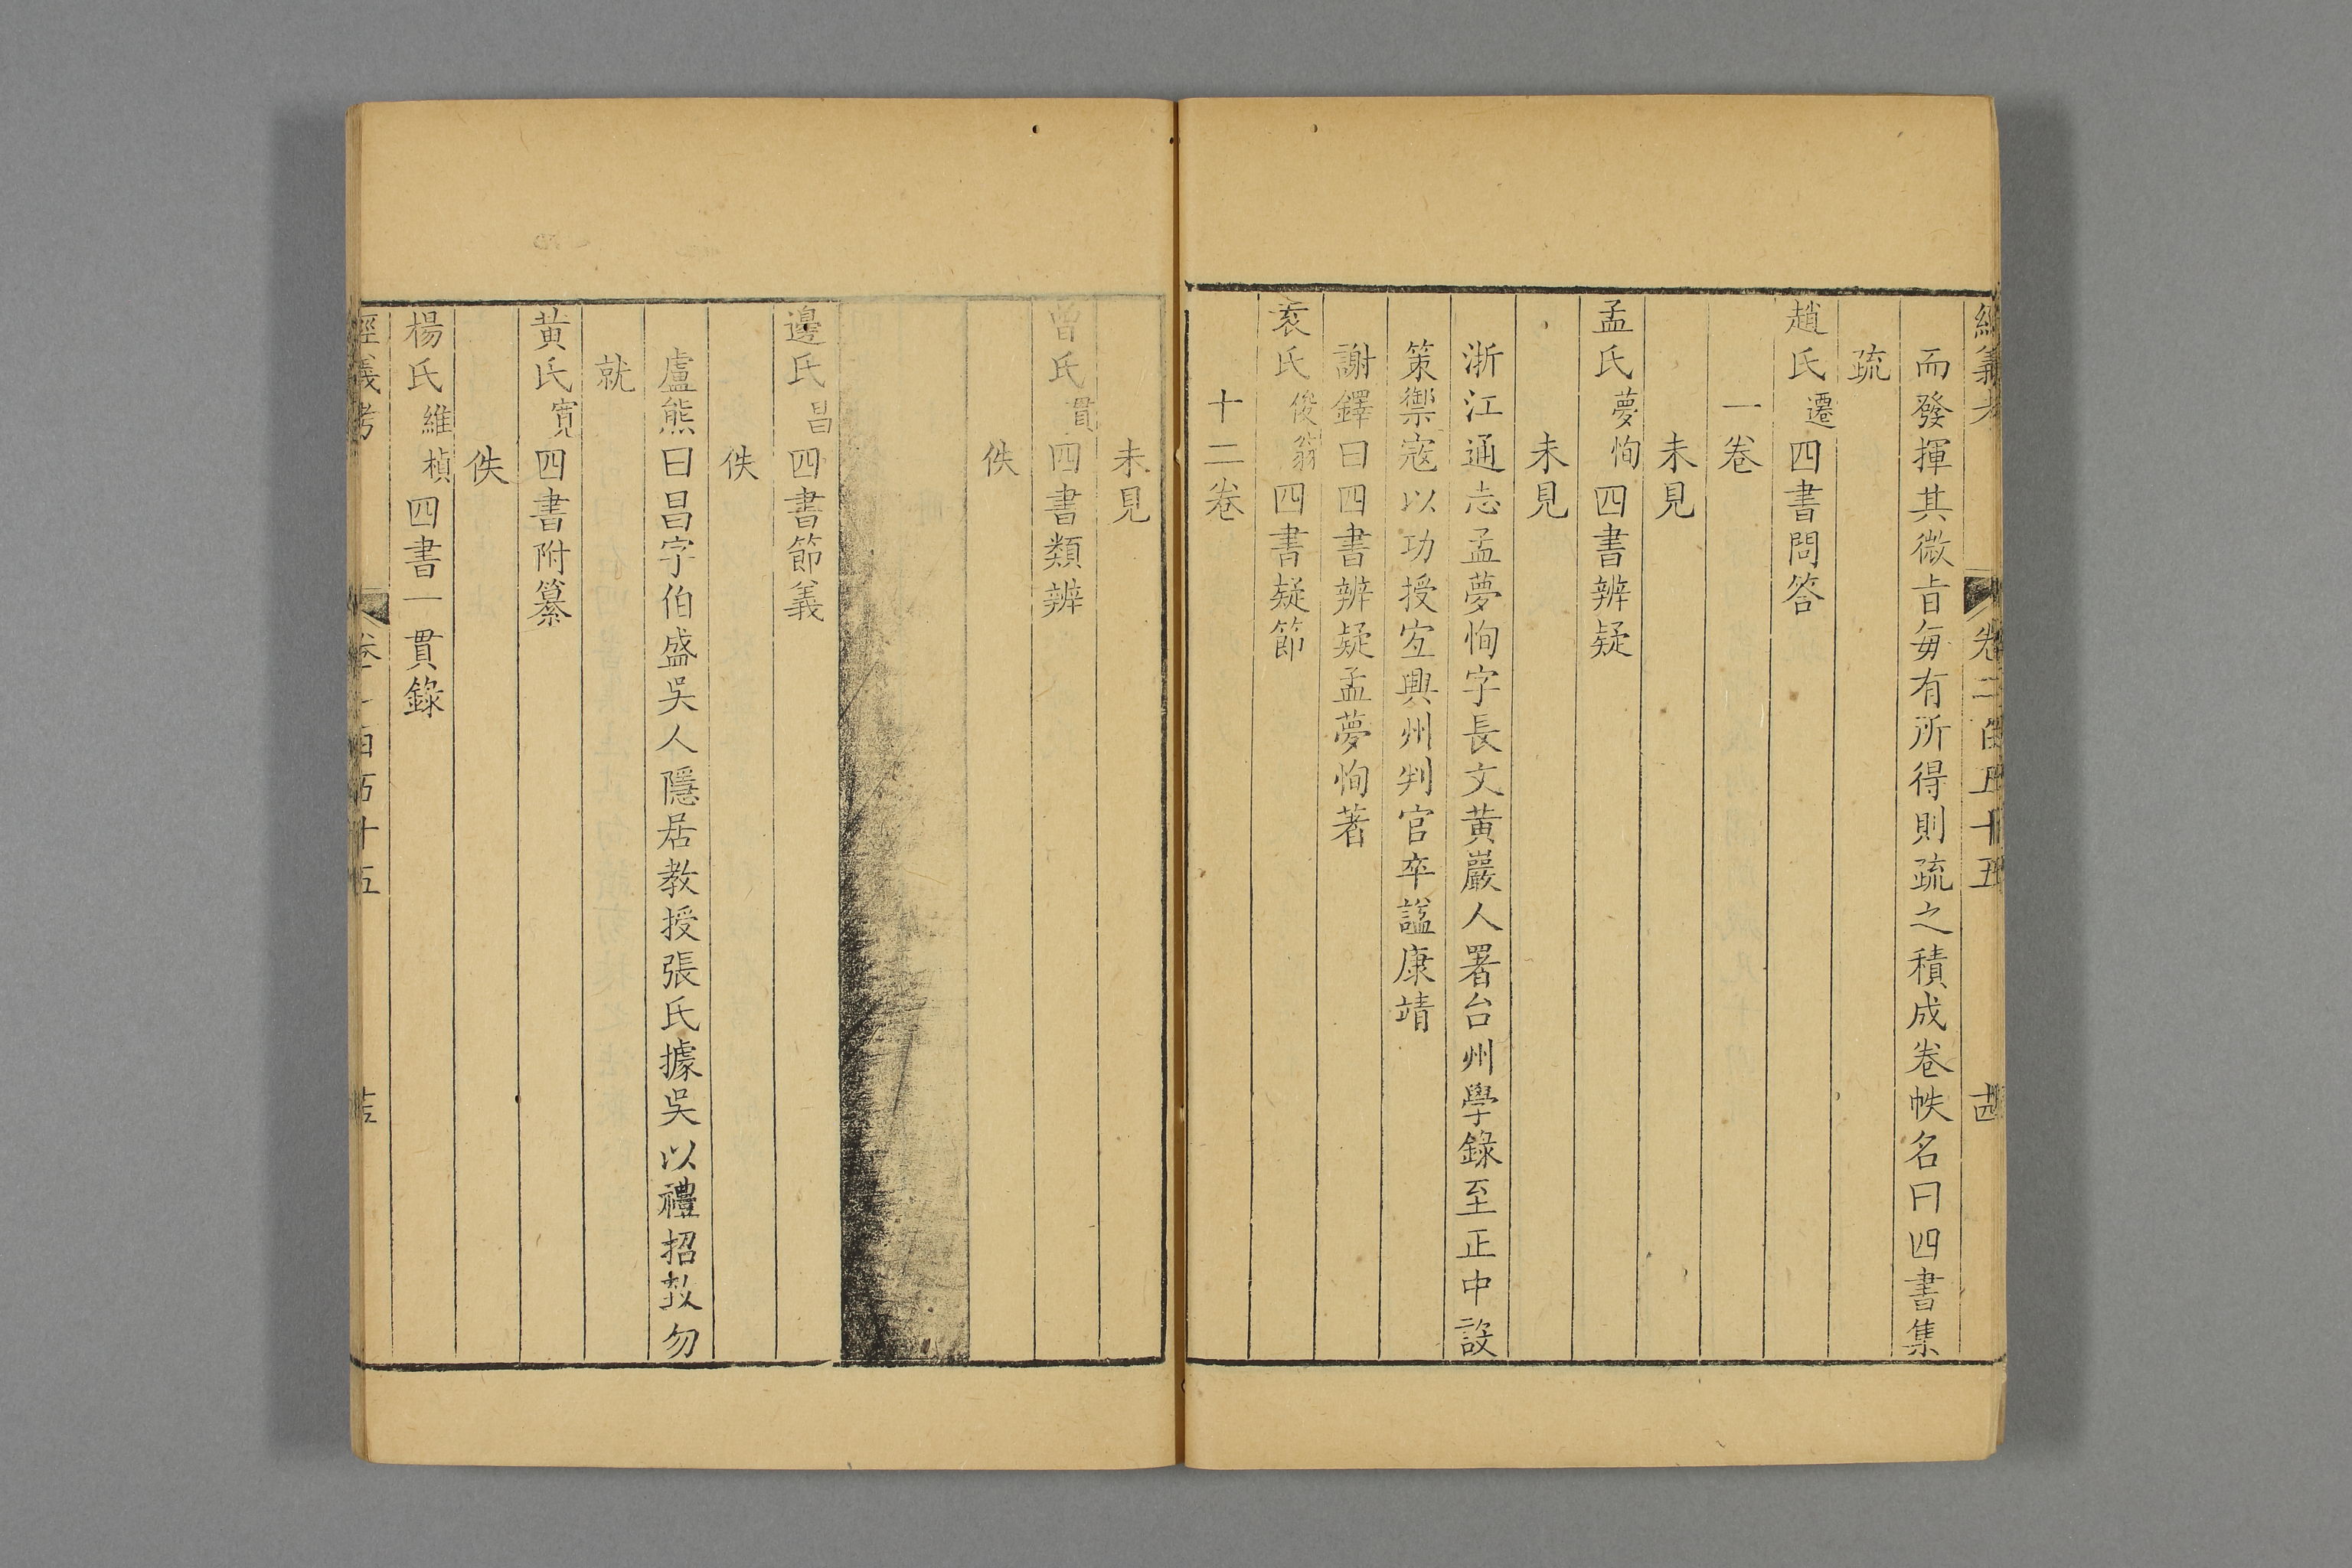 經義考 卷二百五十五 十四
而發揮其微旨每有所得則疏之積成卷帙名曰四書集
疏
趙氏遷四書問答
一卷
未見
孟氏夢恂四書辨疑
未見
浙江通志孟夢恂字長文黃巖人署台州學錄至正中設
策禦寇以功授宐興州判官卒諡康靖
謝鐸曰四書辨疑孟夢恂著
袁氏俊翁四書疑節
十二卷
未見
曾氏貫四書類辨
佚
邊氏昌四書節義
佚
盧熊曰昌字伯盛吳人隱居教授張氏據吳以禮招㨿勿
就
黃氏寬四書附纂
佚
楊氏維楨四書一貫錄
經義考 卷二百五十五